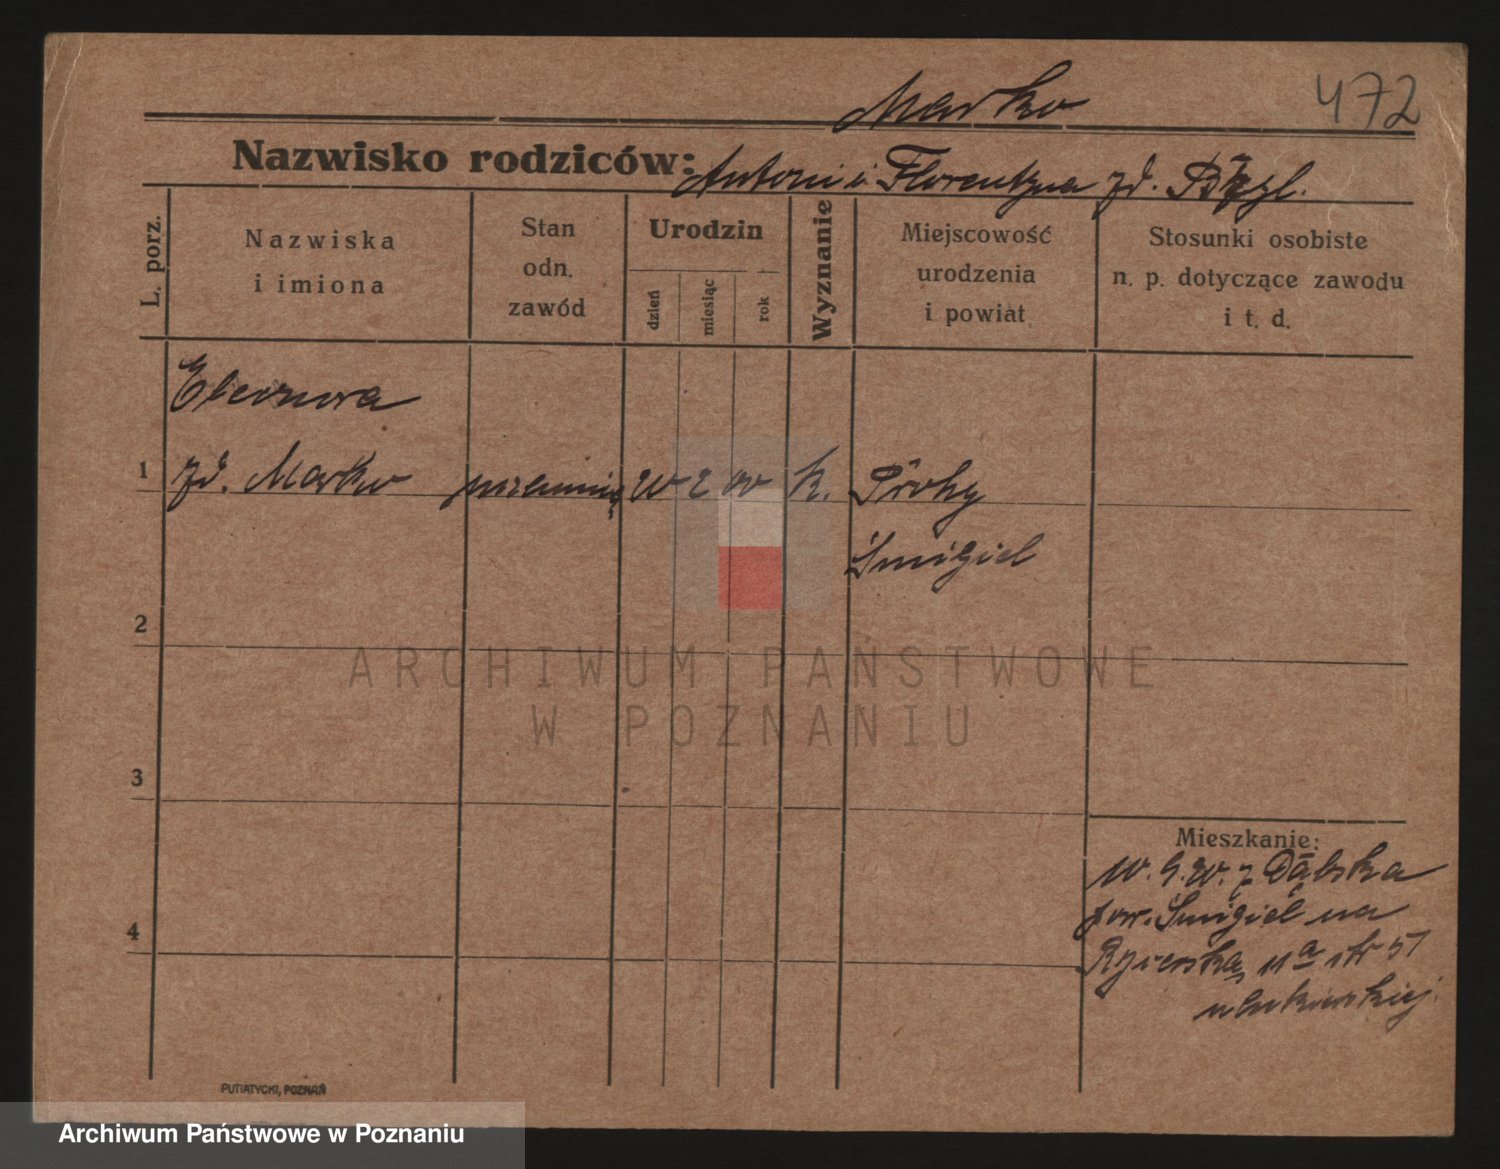 Marko
472
Nazwisko rodziców: Antoni i Florentyna zd.
L. porz.
Nazwiska
i imiona
Stan
odn.
zawód
Urodzin
dzień
miesiąc
rok
Wyznanie
Miejscowość
urodzenia
i powiat
Stosunki osobiste
n. p. dotyczące zawodu
i t. d.
Eleonora
1 zd. Marko 2 k.
Śmigiel
2
3
4
Mieszkanie:
Dąbska
Śmigiel na
57
ARCHIWUM PAŃSTWOWE
W POZNANIU
PUTIATYCKI, POZNAŃ
Archiwum Państwowe w Poznaniu